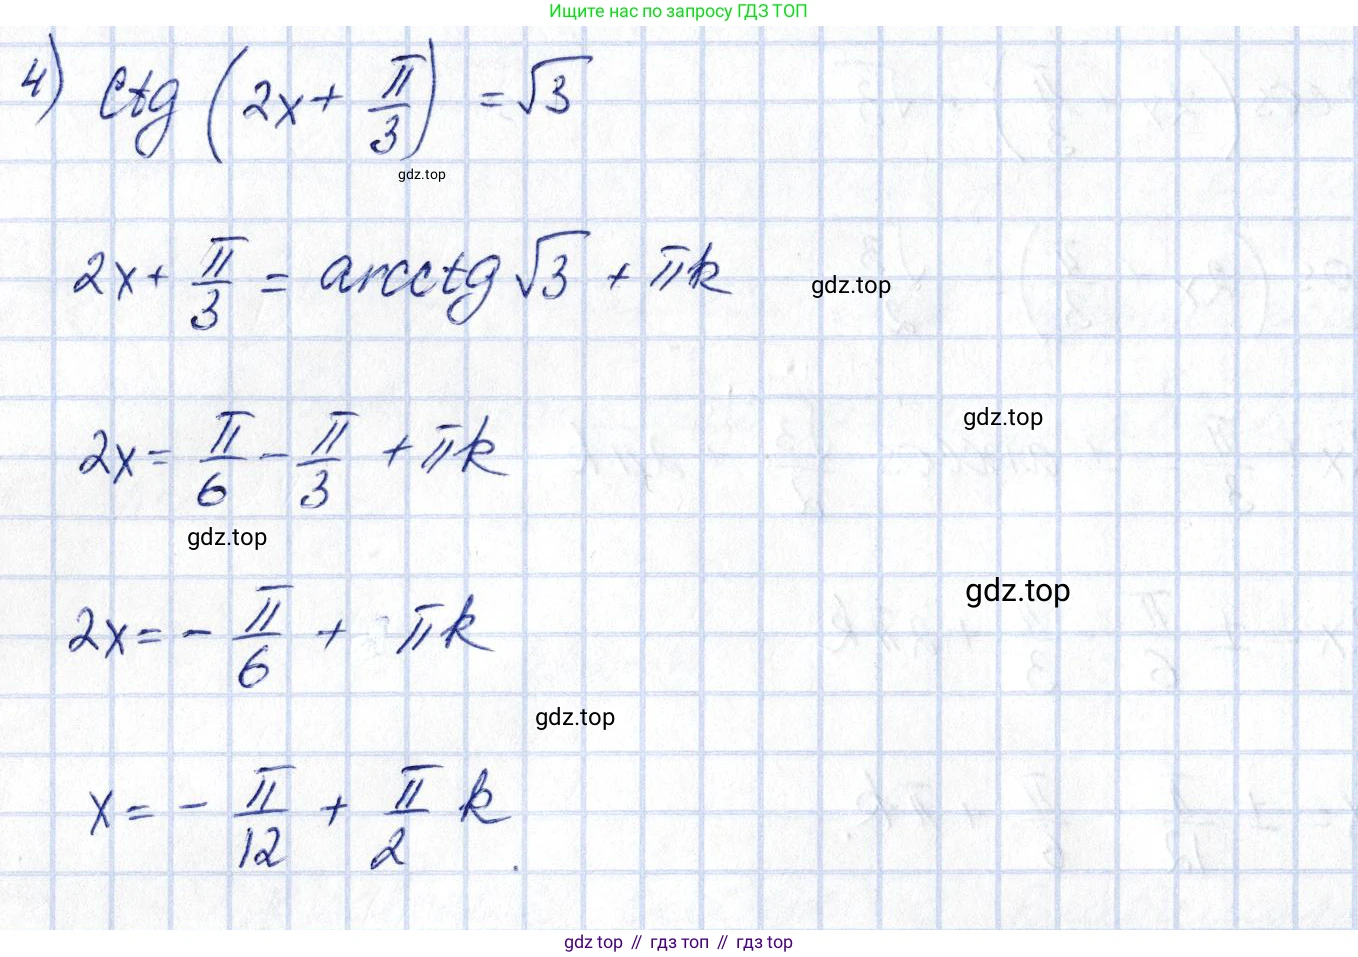 Ищите нас по запросу ГДЗ ТОП
4) ctg (2x + π/3) = √3
gdz.top
2x + π/3 = arcctg √3 + πk
gdz.top
gdz.top
2x = π/6 - π/3 + πk
gdz.top
gdz.top
2x = - π/6 + πk
gdz.top
x = - π/12 + π/2 k.
gdz top // гдз топ // гдз top